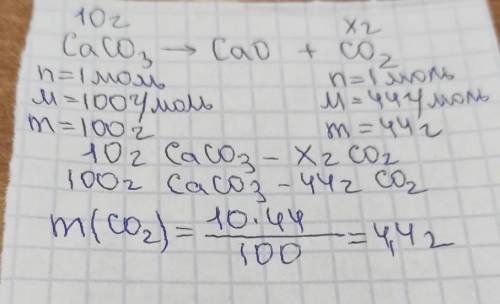 10г хг
CaCO₃ → CaO + CO₂
n=1моль n=1моль
M=100г/моль M=44г/моль
m=100г m=44г
10г CaCO₃ – хг CO₂
100г CaCO₃ – 44г CO₂
m(CO₂) = 10·44 / 100 = 4,4г